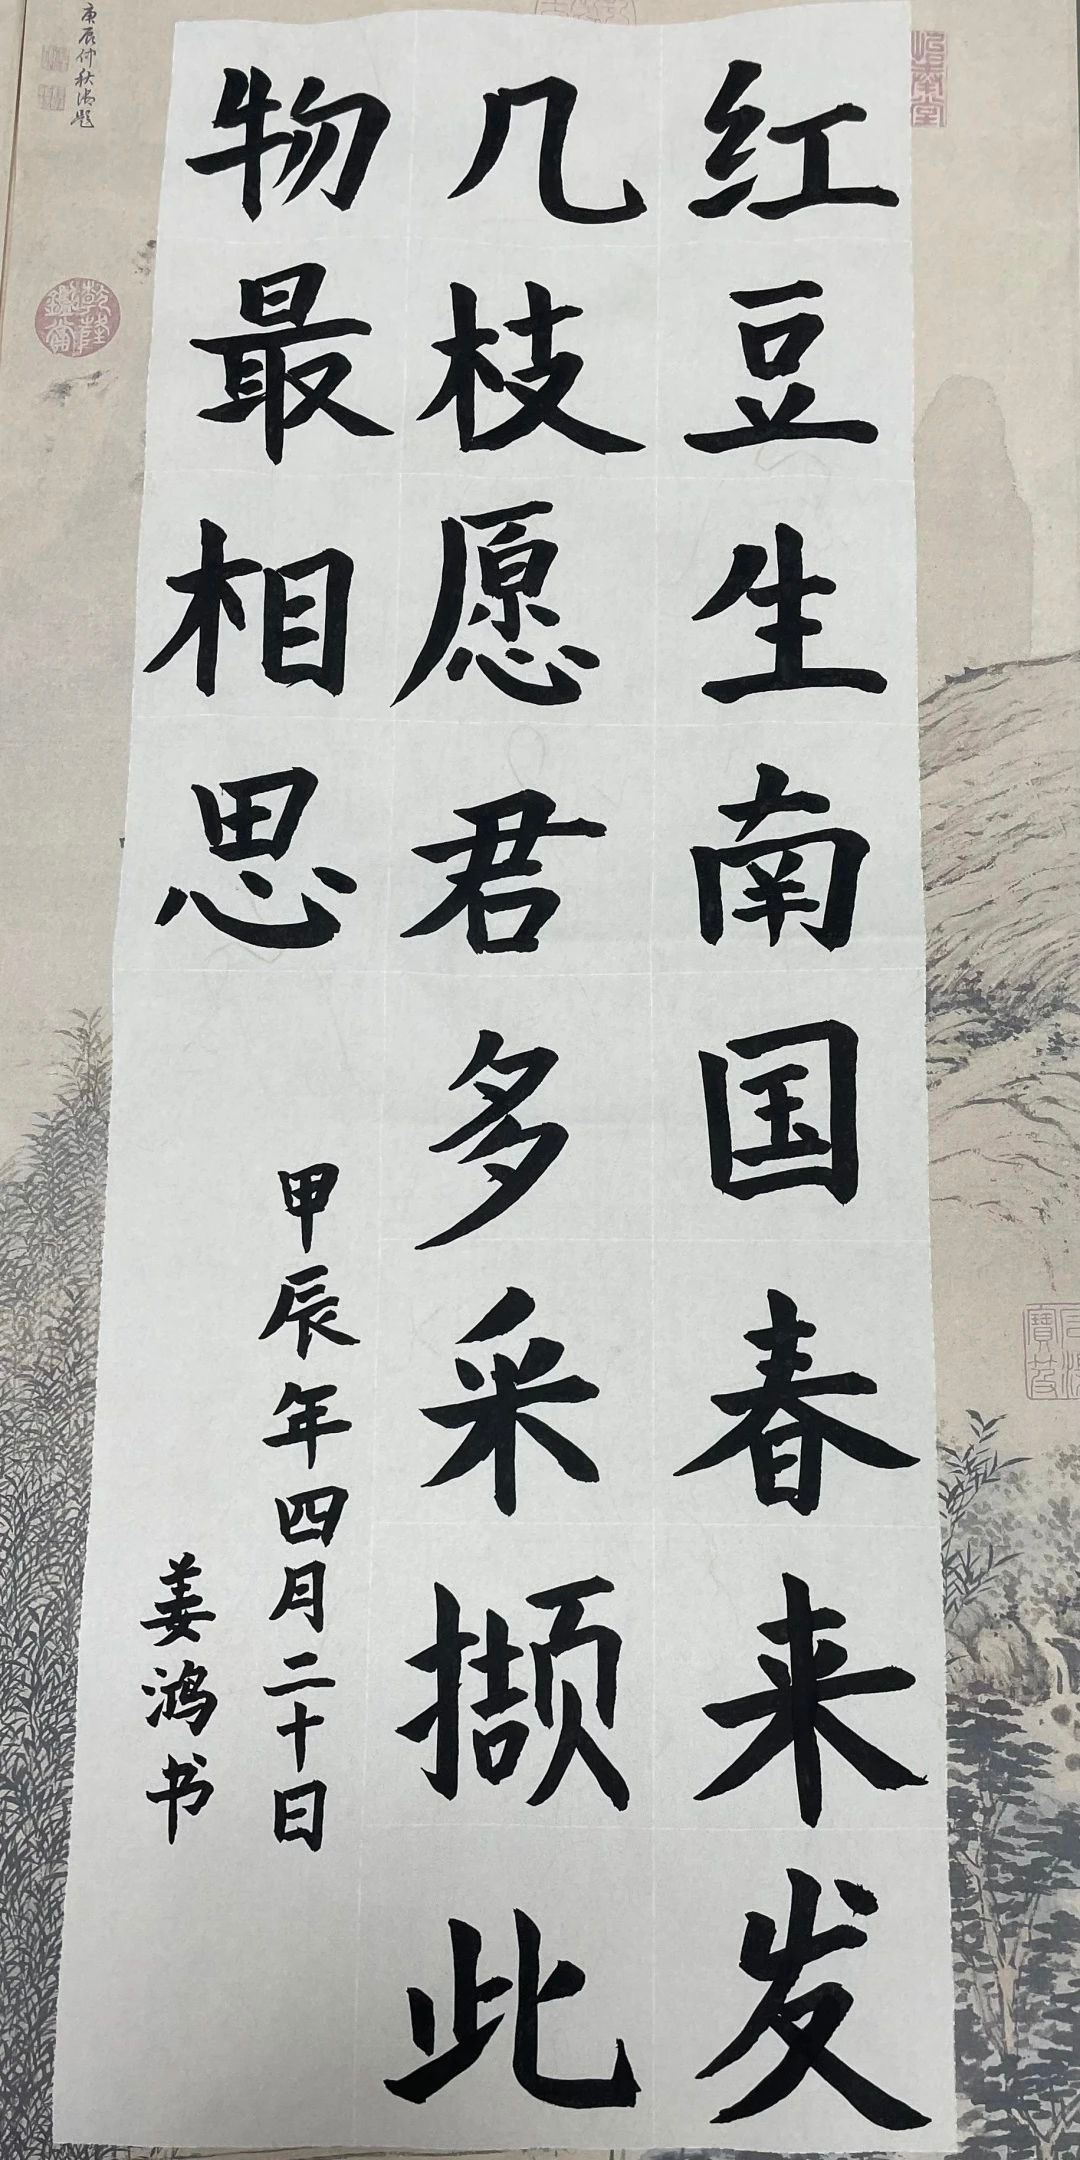 红豆生南国春来发
几枝愿君多采撷此
物最相思
甲辰年四月二十日
姜鸿书